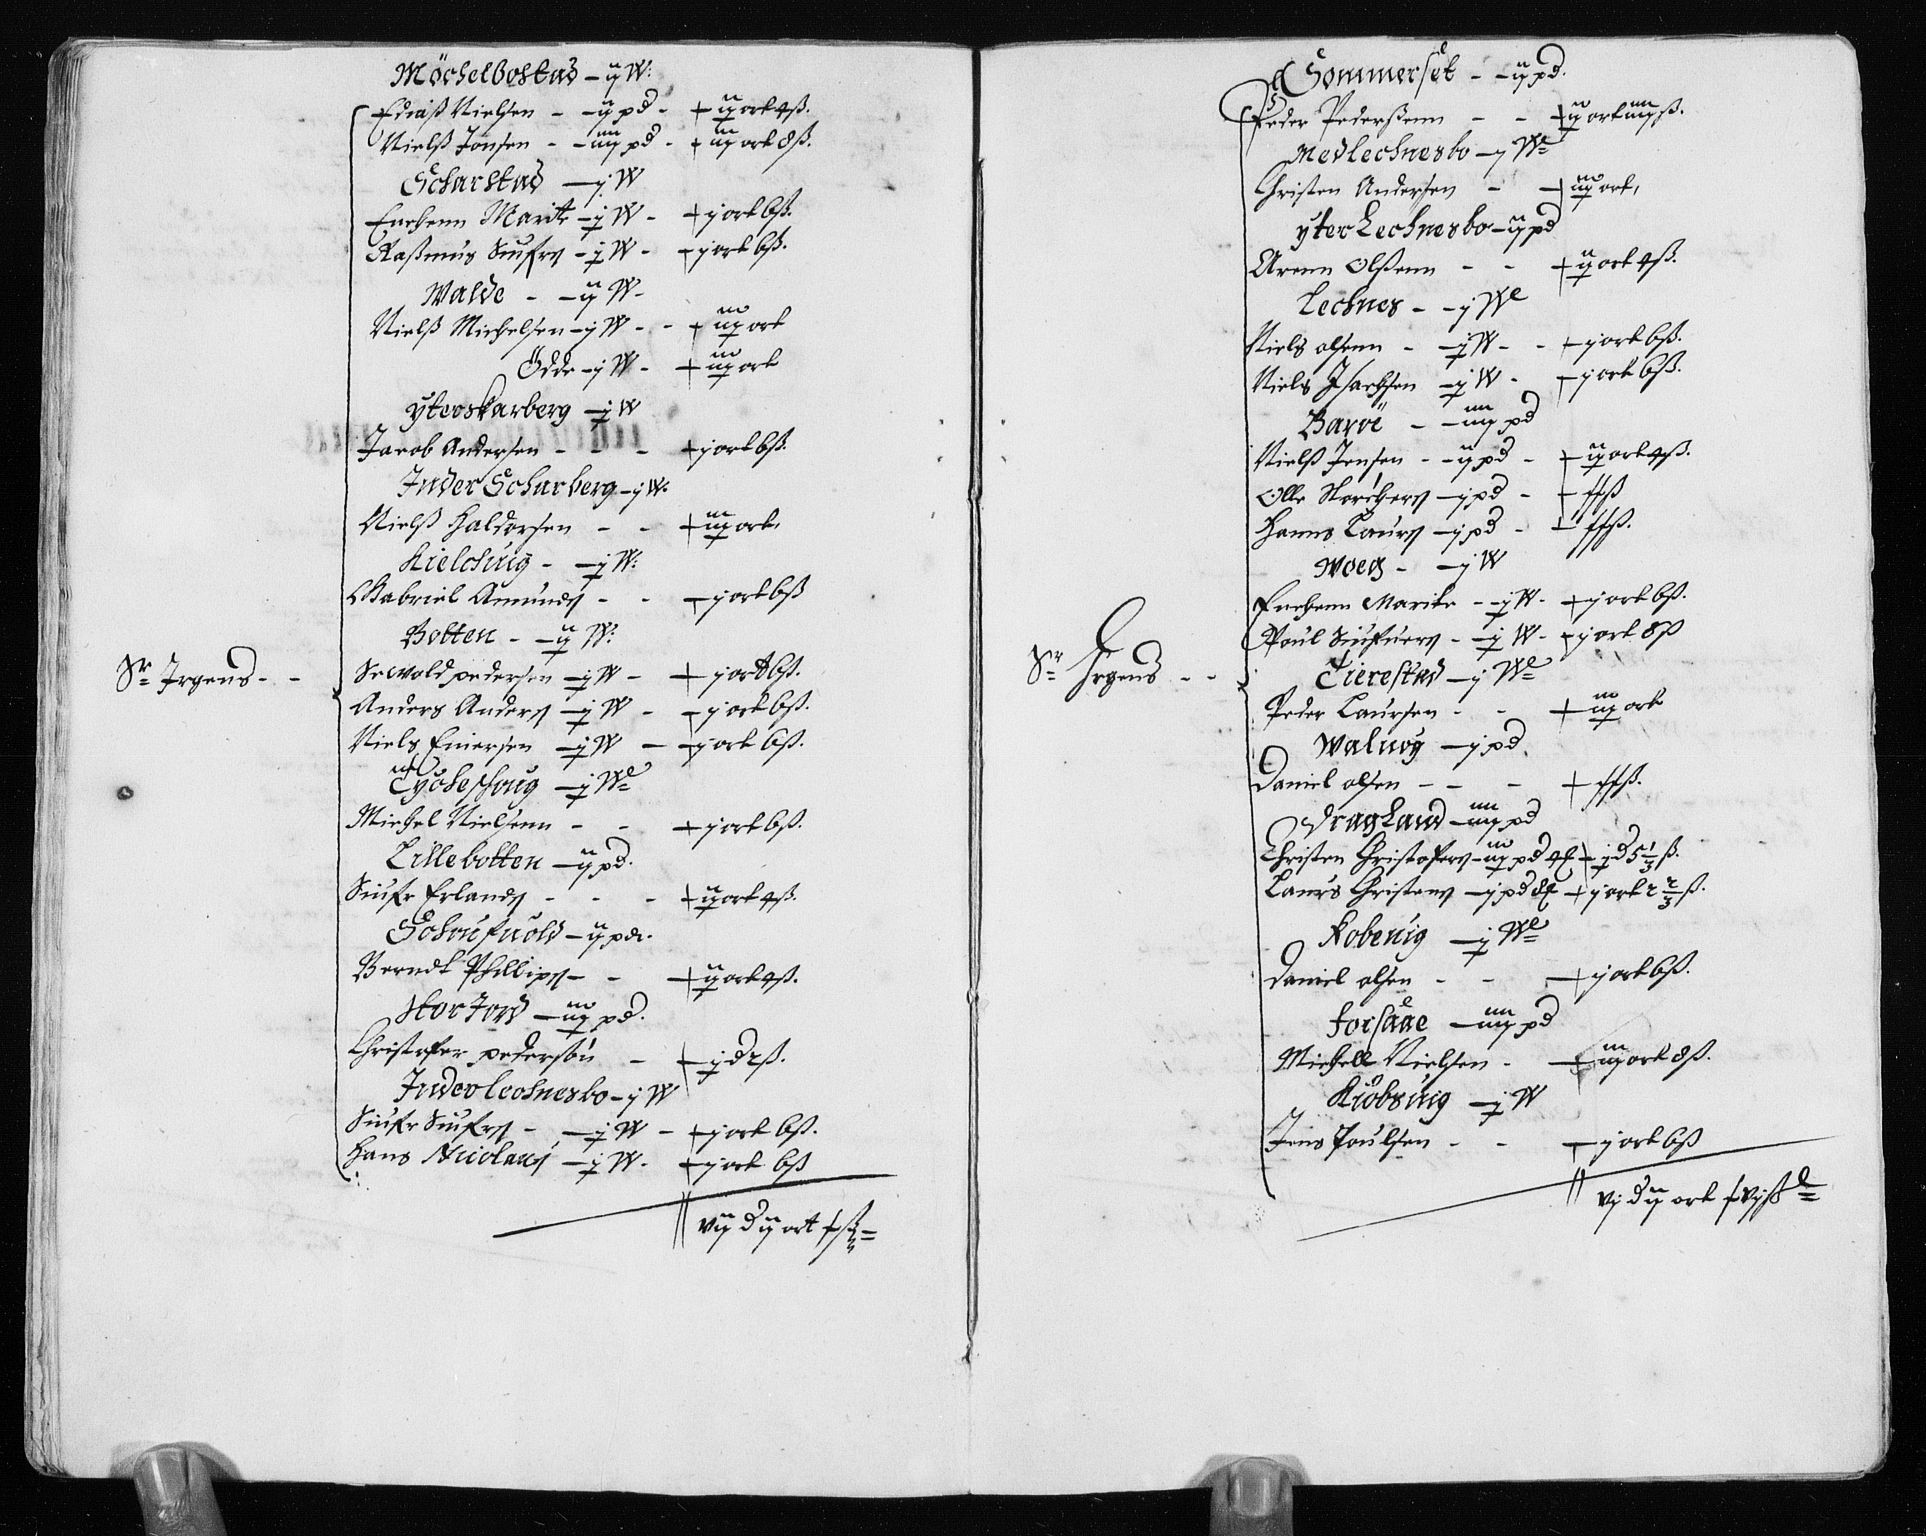 Möchelbostad - ij W:
Ediaß Nielsen - - ij pd - + ij ort 4 ß.
Nielß Jonsen - - iiij pd - + iij ort 8 ß.
Scharstad - j W
Enchenn Marite - j W - + j ort 6 ß.
Raßmus Siufrs - j W - + j ort 6 ß.
Walde - - ij W -
Nielß Michelsen - j W - - + iij ort
Ödde - j W - + iij ort
ÿterskarberg - j W
Jacob Andersen - - - + j ort 6 ß.
Inder Scharberg - j W.
Nielß Haldorsen - - + iij ort.
Kielchuig - - j W:
Gabriel Amunds - - - j ort 6 ß
Botten - - ij W:
Sr Irgens - -
Sewold pedersen - j W - + j ort 6 ß.
Anders Anders - j W - - j ort 6 ß.
Niels Einersen - j W - - j ort 6 ß.
Tÿcheshoug - j We
Michel Nielsenn - - + j ort 6 ß.
Lillebotten - ij pd.
Siufr Erlands - - - + ij ort 4 ß.
Schoufuold - ij pd.
Berndt Phillips - - + ij ort 4 ß.
Stor Jord - iij pd.
Christofer pedersön - + j D 2 ß.
Inder lechnesbo - j W
Siufr Siufrs - - j W - + j ort 6 ß.
Hans Nicolaus - j W - + j ort 6 ß
vij D ij ort f ß
Sommerset - - ij pd.
Peder Pederßenn - - + ij ort iiij ß.
Medlechnesbo - j We
Christen Andersen - - + iij ort,
ÿter Lechnesbo - ij pd
Arenn Olßenn - - + ij ort 4 ß.
Lechnes - - j We
Niels olsenn - - j W - - + j ort 6 ß.
Niels Isachsen - j W - + j ort 6 ß.
Baröe - - iiij pd
Nielß Jensen - - ij pd - + ij ort 4 ß.
Olle Storchers - j pd - + ff ß
Hanns Laurs - j pd - + ff ß.
Woeg - - j W
Enchenn Marite - - j W - + j ort 6 ß.
Poul Siufuers - - j W - + j ort 8 ß
Sr Irgens - -
Tierestad - j We
Peder Laursen - - + iij ort
Waluög - j pd.
Daniel olsen - - - + ff ß.
Dragland - iiij pd
Christen Christofers - iij pd + j D 5 1/3 ß.
Laurs Christens - j pd + j ort 2 2/3 ß.
Kobenig - j We
Daniel olsen - - + j ort 6 ß.
forsaae - iiij pd
Michell Nielsen - + iij ort 8 ß.
Kiöbsuig - j W
Jens Poulsen - - - j ort 6 ß
vj D ij ort f vij ß